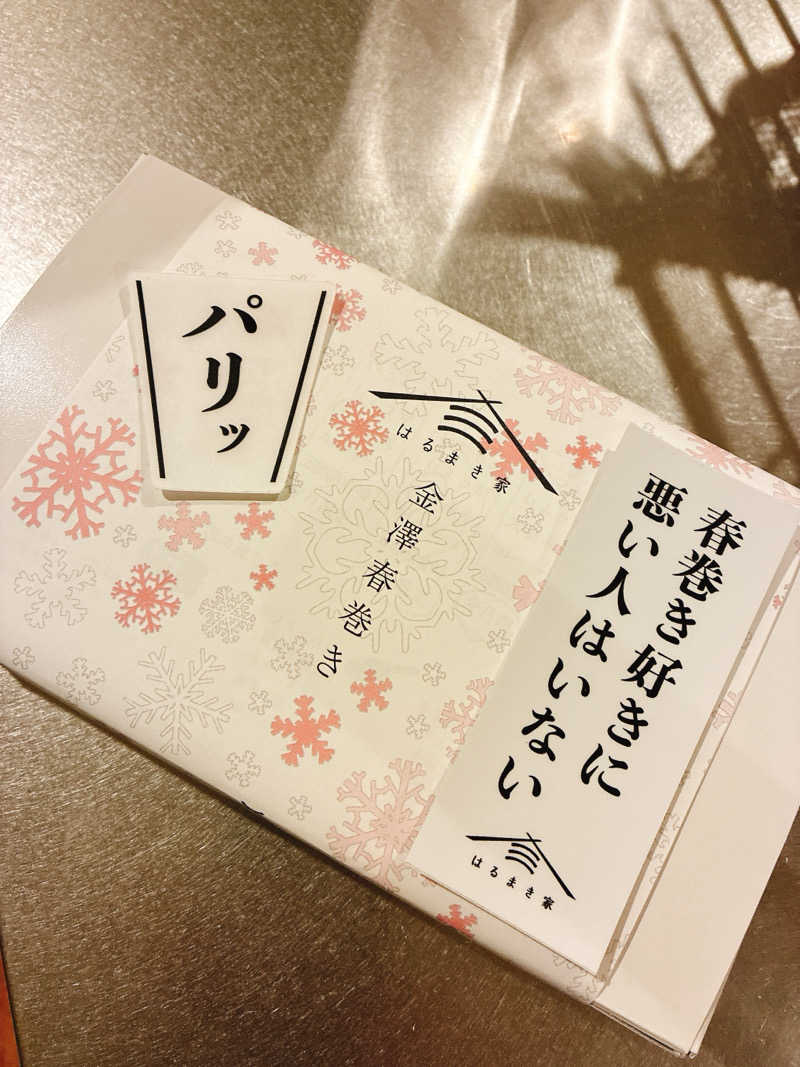 パリッ
はるまき家
金澤春巻き
春巻き好きに
悪い人はいない
はるまき家